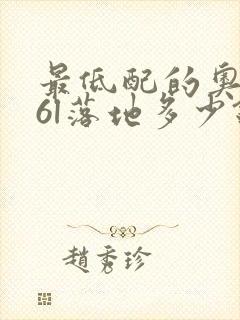 最低配的奥
6l落地多少
趙秀珍